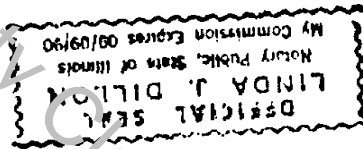 OFFICIAL SEAL
LINDA J. DILLON
Notary Public, State of Illinois
My Commission Expires 09/09/90